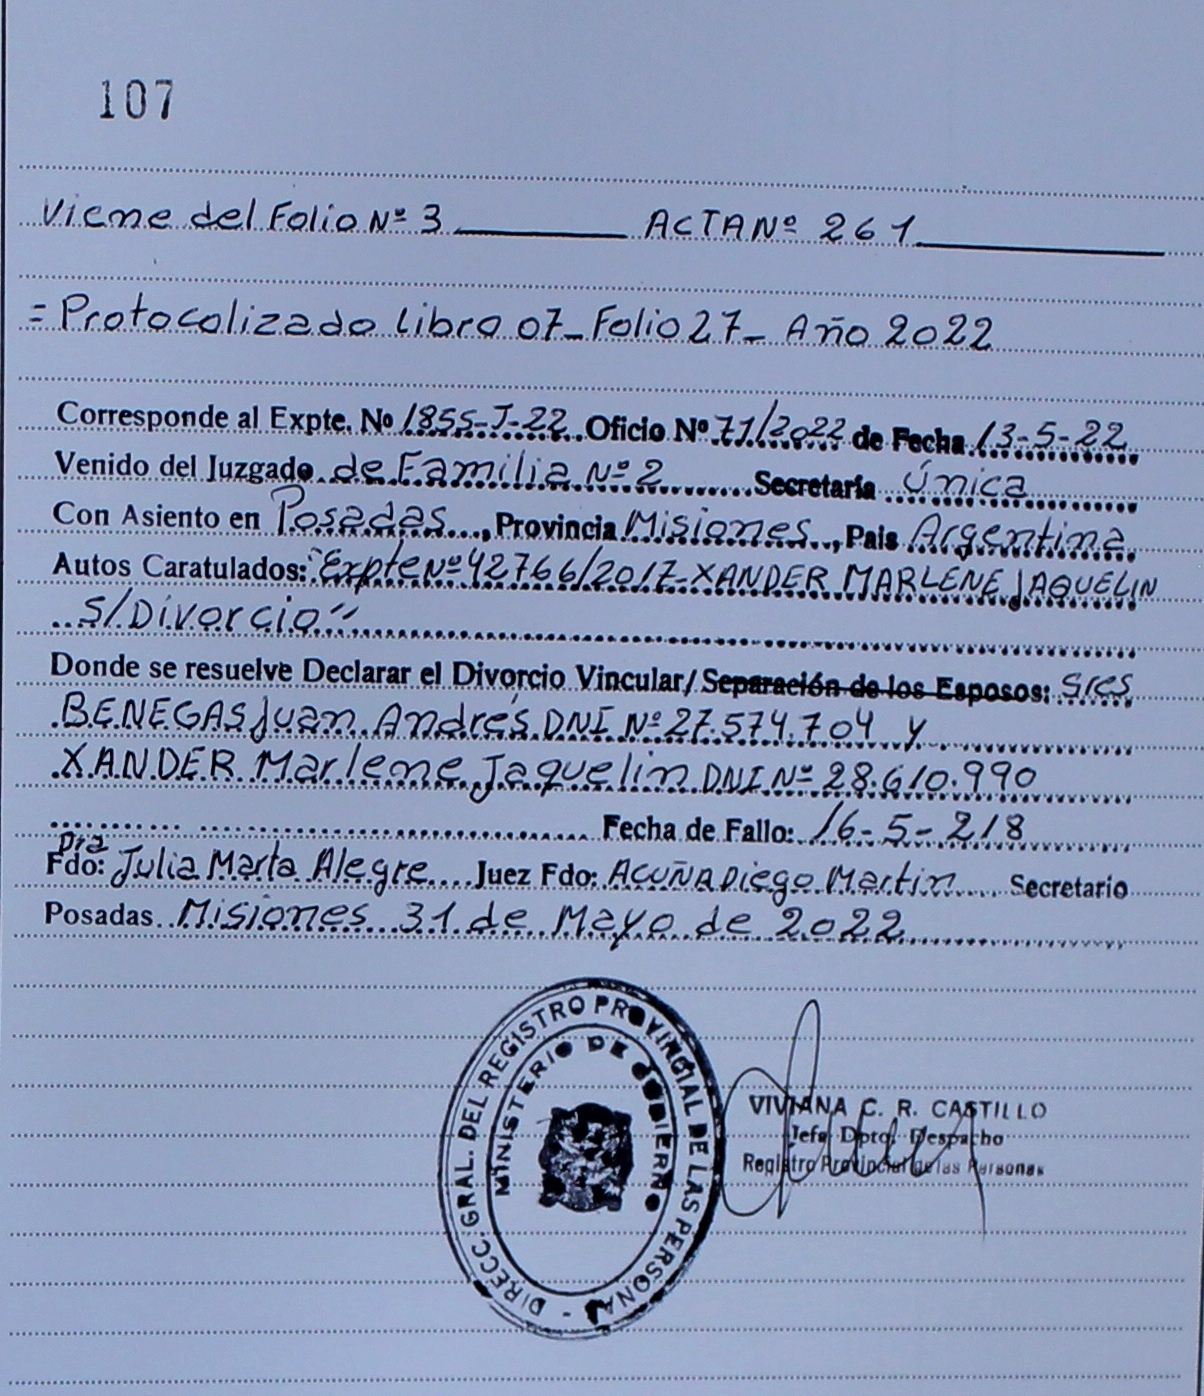 107
Viene del Folio Nº 3 ACTA Nº 261
= Protocolizado Libro 07_ Folio 27_ Año 2022
Corresponde al Expte. No 1855-J-22 Oficio Nº 71/2022 de Fecha 13-5-22
Venido del Juzgado de Familia Nº 2 Secretaría Única
Con Asiento en Posadas, Provincia Misiones, Pais Argentina
Autos Caratulados: "Expte Nº 42766/2017-XANDER MARLENE JAQUELIN
S/Divorcio"
Donde se resuelve Declarar el Divorcio Vincular/ Separación de los Esposos: Sres
BENEGAS Juan Andrés DNI Nº 27.574.704 y
XANDER Marlene Jaquelin DNI Nº 28.610.990
Fecha de Fallo: 16-5-218
Dra
Fdo: Julia Marta Alegre Juez Fdo: ACUÑA Diego Martin Secretario
Posadas Misiones 31 de Mayo de 2022
DIRECC. GRAL. DEL REGISTRO PROVINCIAL DE LAS PERSONAS -
MINISTERIO DE GOBIERNO
VIVIANA C. R. CASTILLO
Jefa Dpto. Despacho
Registro Provincial de las Personas